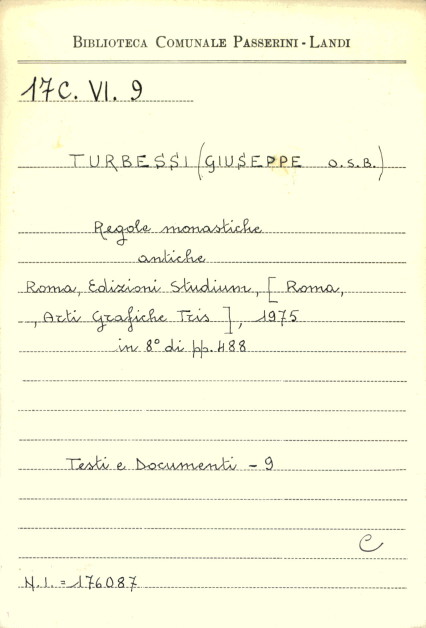 BIBLIOTECA COMUNALE PASSERINI - LANDI
17C. VI. 9
TURBESSI (GIUSEPPE O.S.B.)
Regole monastiche
antiche
Roma, Edizioni Studium, [ Roma,
, Arti Grafiche Tris ], 1975
in 8° di pp. 488
Testi e Documenti - 9
C
N.I. = 176087